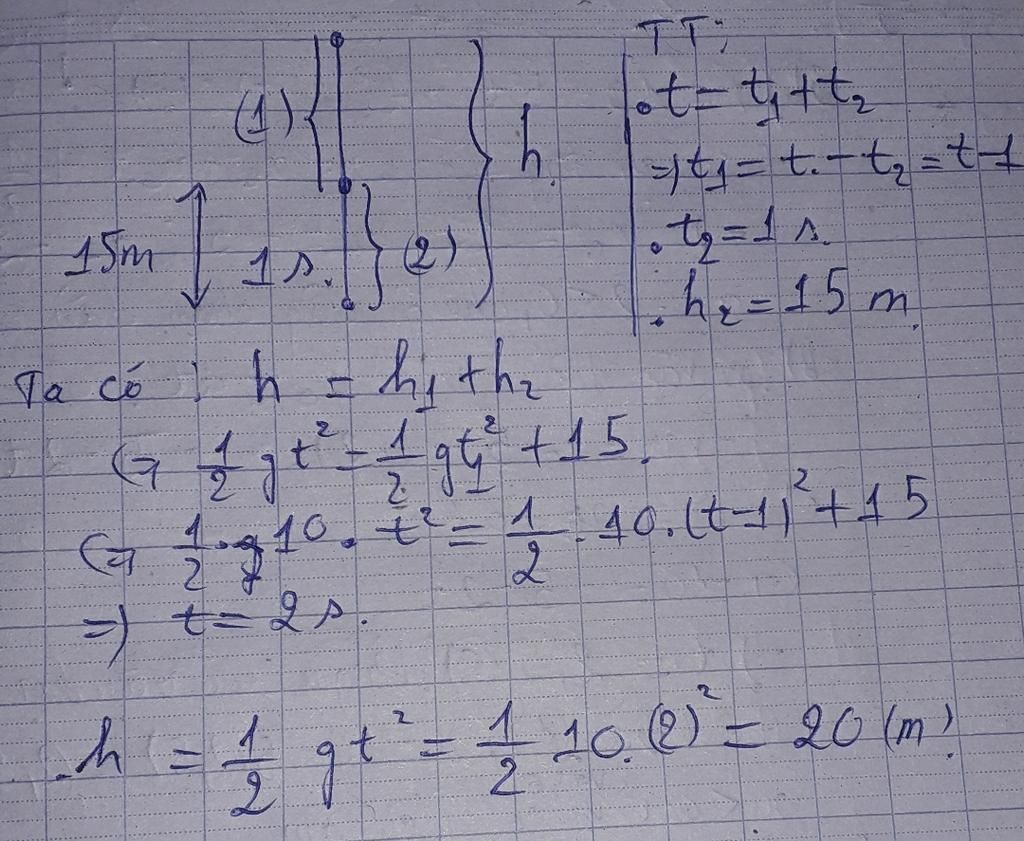 (1)
h
15m
1s.
(2)
TT:
. t = t₁ + t₂
=> t₁ = t - t₂ = t-1
. t₂ = 1 s.
. h₂ = 15 m
Ta có : h = h₁ + h₂
<=> 1/2 gt² = 1/2 gt₁² + 15.
<=> 1/2 . 10 . t² = 1/2 . 10 . (t-1)² + 15
=> t = 2s.
. h = 1/2 gt² = 1/2 10.(2)² = 20 (m)